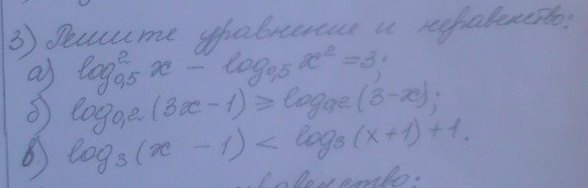 3) Решите уравнение и неравенство:
а) log²₀,₅ x − log₀,₅ x² = 3;
б) log₀,₂ (3x − 1) ≥ log₀,₂ (3 − x);
в) log₃ (x − 1) < log₃ (x + 1) + 1.